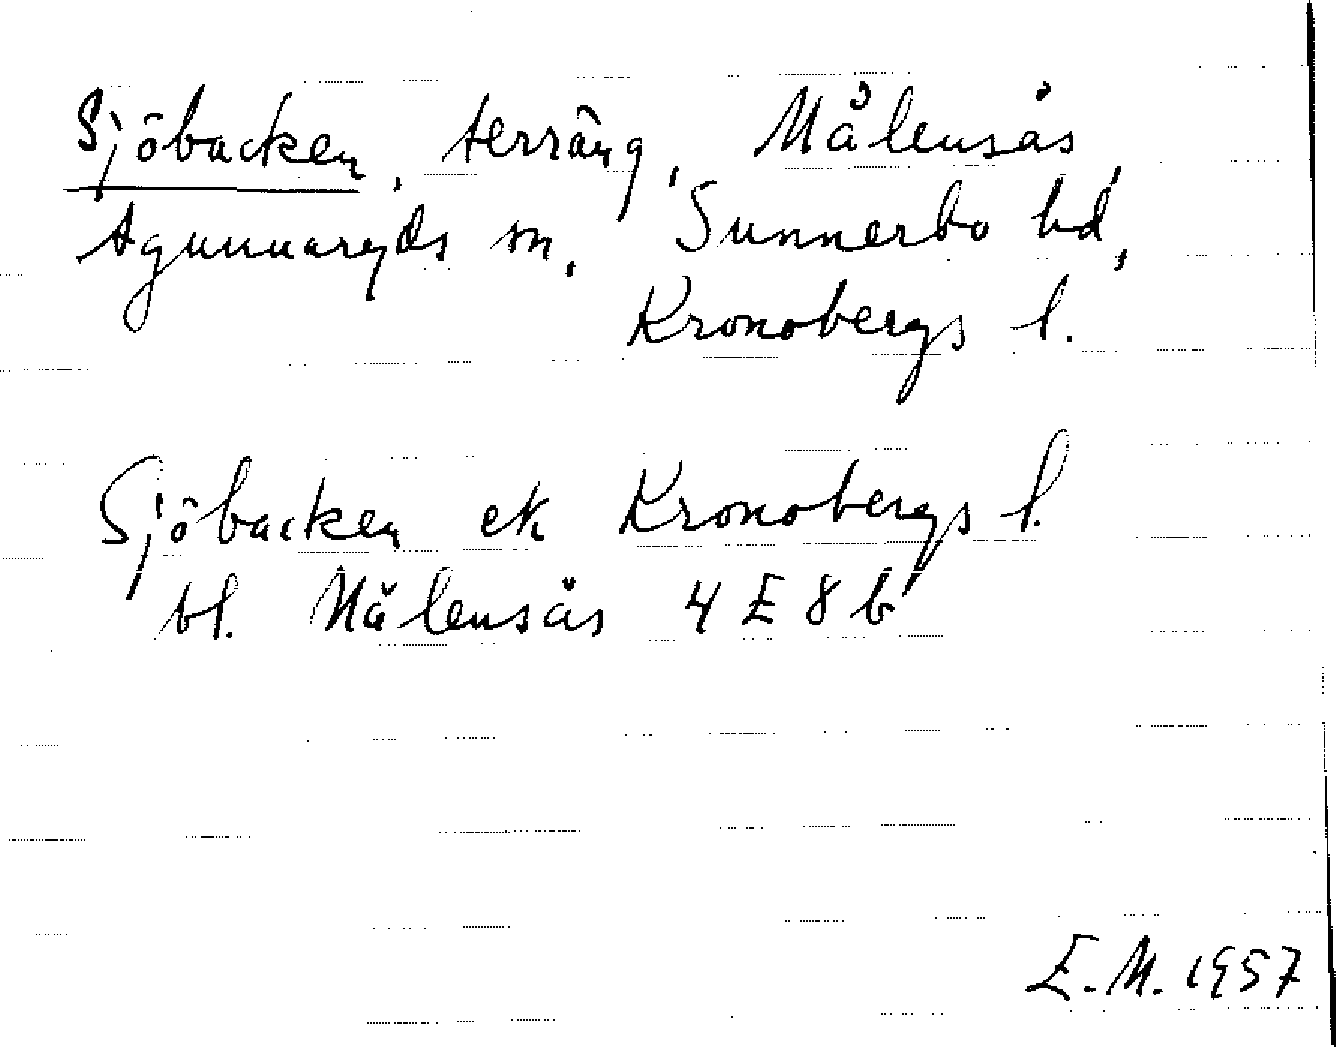 Sjöbacken, terräng, Målensås,
Agunnaryds sn, Sunnerbo hd,
Kronobergs l.
Sjöbacken ek Kronobergs l.
bl. Målensås 4 E 8 b
E.M. 1957